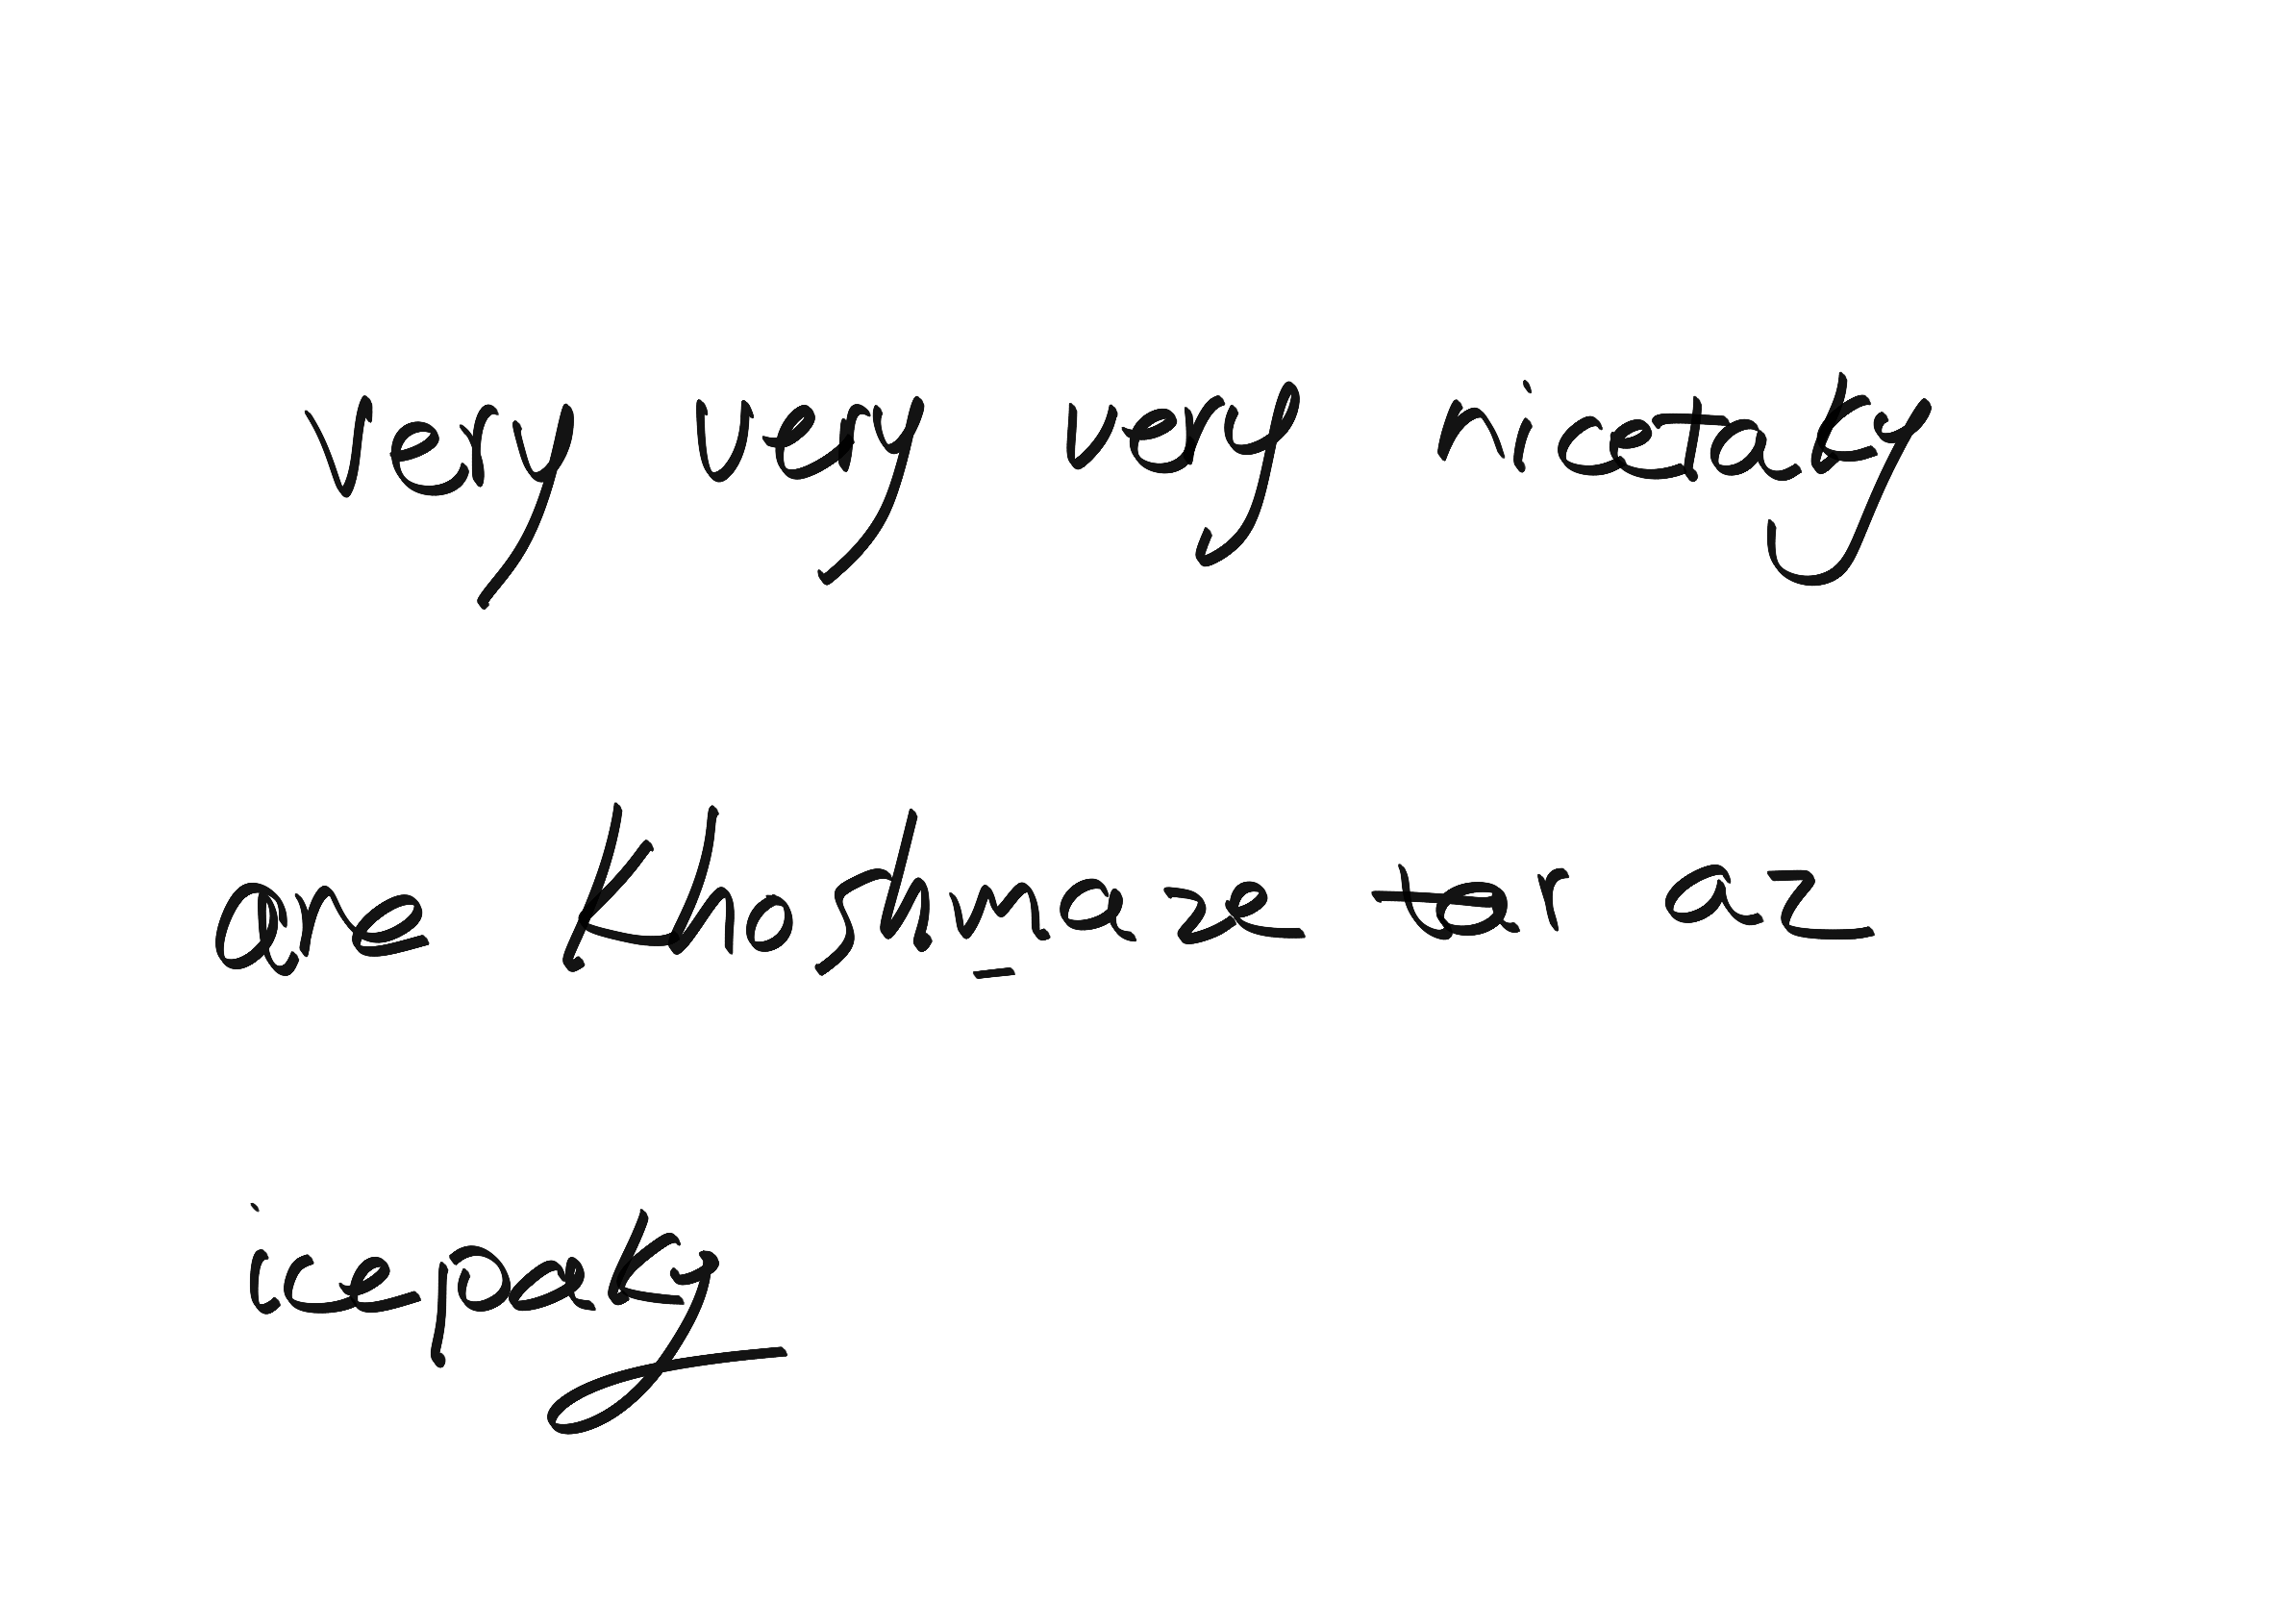 very very very nicetaky
are Khoshmaze tar az
icepaky